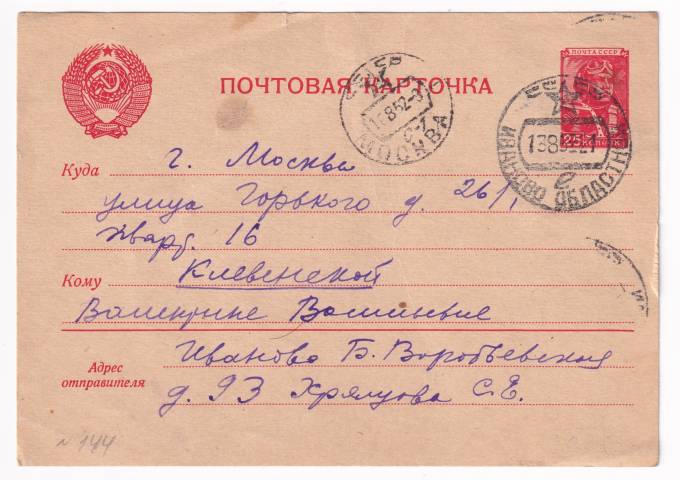 ПОЧТА СССР
ПОЧТОВАЯ КАРТОЧКА
25 КОПЕЕК
СССР
МОСКВА
СССР
13 8 52
ИВАНОВО ОБЛАСТН
е
Куда г. Москва
улица Горького д. 26/1
Кварт. 16
Кому Клевенской
Валентине Васильевне
Адрес отправителя Иваново Б. Воробьевская
д. 93 Хряпцова С.Е.
№ 144